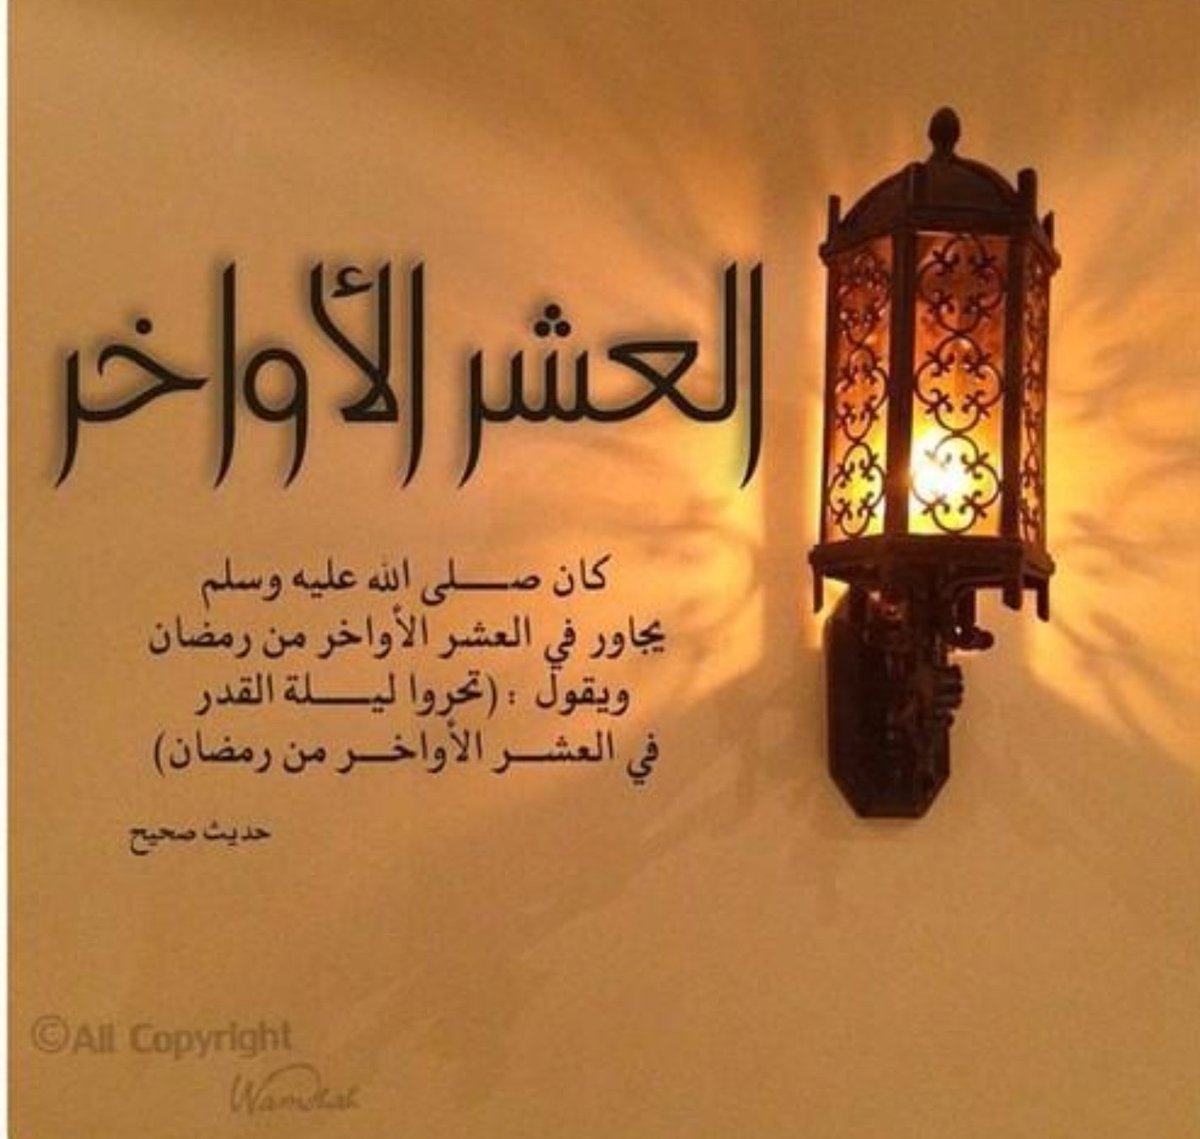 العشر الأواخر
كان صلى الله عليه وسلم
يجاور في العشر الأواخر من رمضان
ويقول : (تحروا ليلة القدر
في العشر الأواخر من رمضان)
حديث صحيح
©All Copyright
Wamdhah